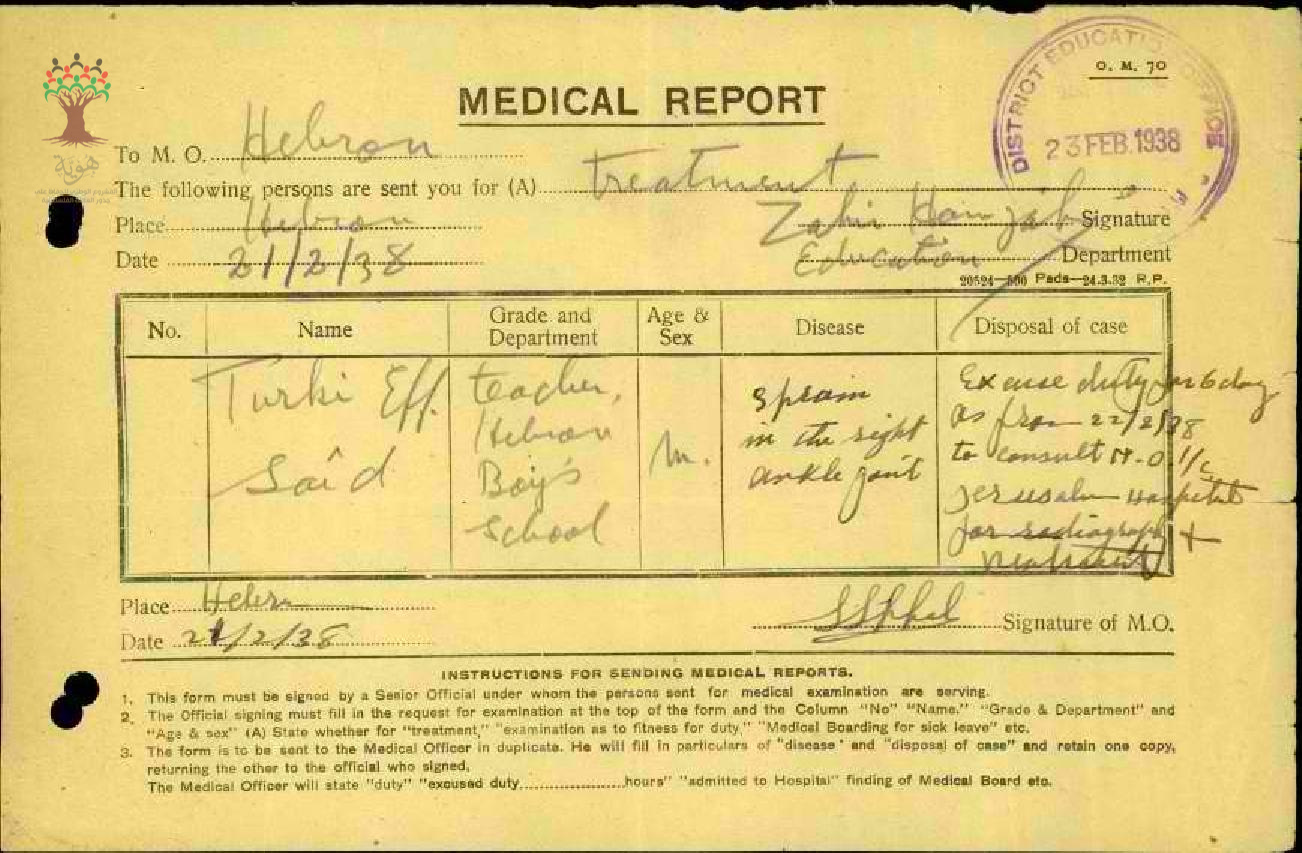 DISTRICT EDUCATION OFFICE
23 FEB. 1938
O. M. 70
هوية
MEDICAL REPORT
To M. O. Hebron
The following persons are sent you for (A) treatment
Place Hebron
Zahir Signature
Date 21/2/38
Education Department
20524—500 Pads—24.3.32 R.P.
No. Name Grade and Department Age & Sex Disease Disposal of case
Turki Eff.
Sa'id
teacher,
Hebron
Boy's
School
M.
Sprain
in the right
ankle joint
Excuse duty for 6 day
as from 22/2/38
to consult M.O. i/c
Jerusalem Hospital
for radiograph +
treatment
Place Hebron
Date 21/2/38
Signature of M.O.
INSTRUCTIONS FOR SENDING MEDICAL REPORTS.
1. This form must be signed by a Senior Official under whom the persons sent for medical examination are serving.
2. The Official signing must fill in the request for examination at the top of the form and the Column "No" "Name." "Grade & Department" and
"Age & sex" (A) State whether for "treatment," "examination as to fitness for duty," "Medical Boarding for sick leave" etc.
3. The form is to be sent to the Medical Officer in duplicate. He will fill in particulars of "disease" and "disposal of case" and retain one copy,
returning the other to the official who signed.
The Medical Officer will state "duty" "excused duty....................hours" "admitted to Hospital" finding of Medical Board etc.